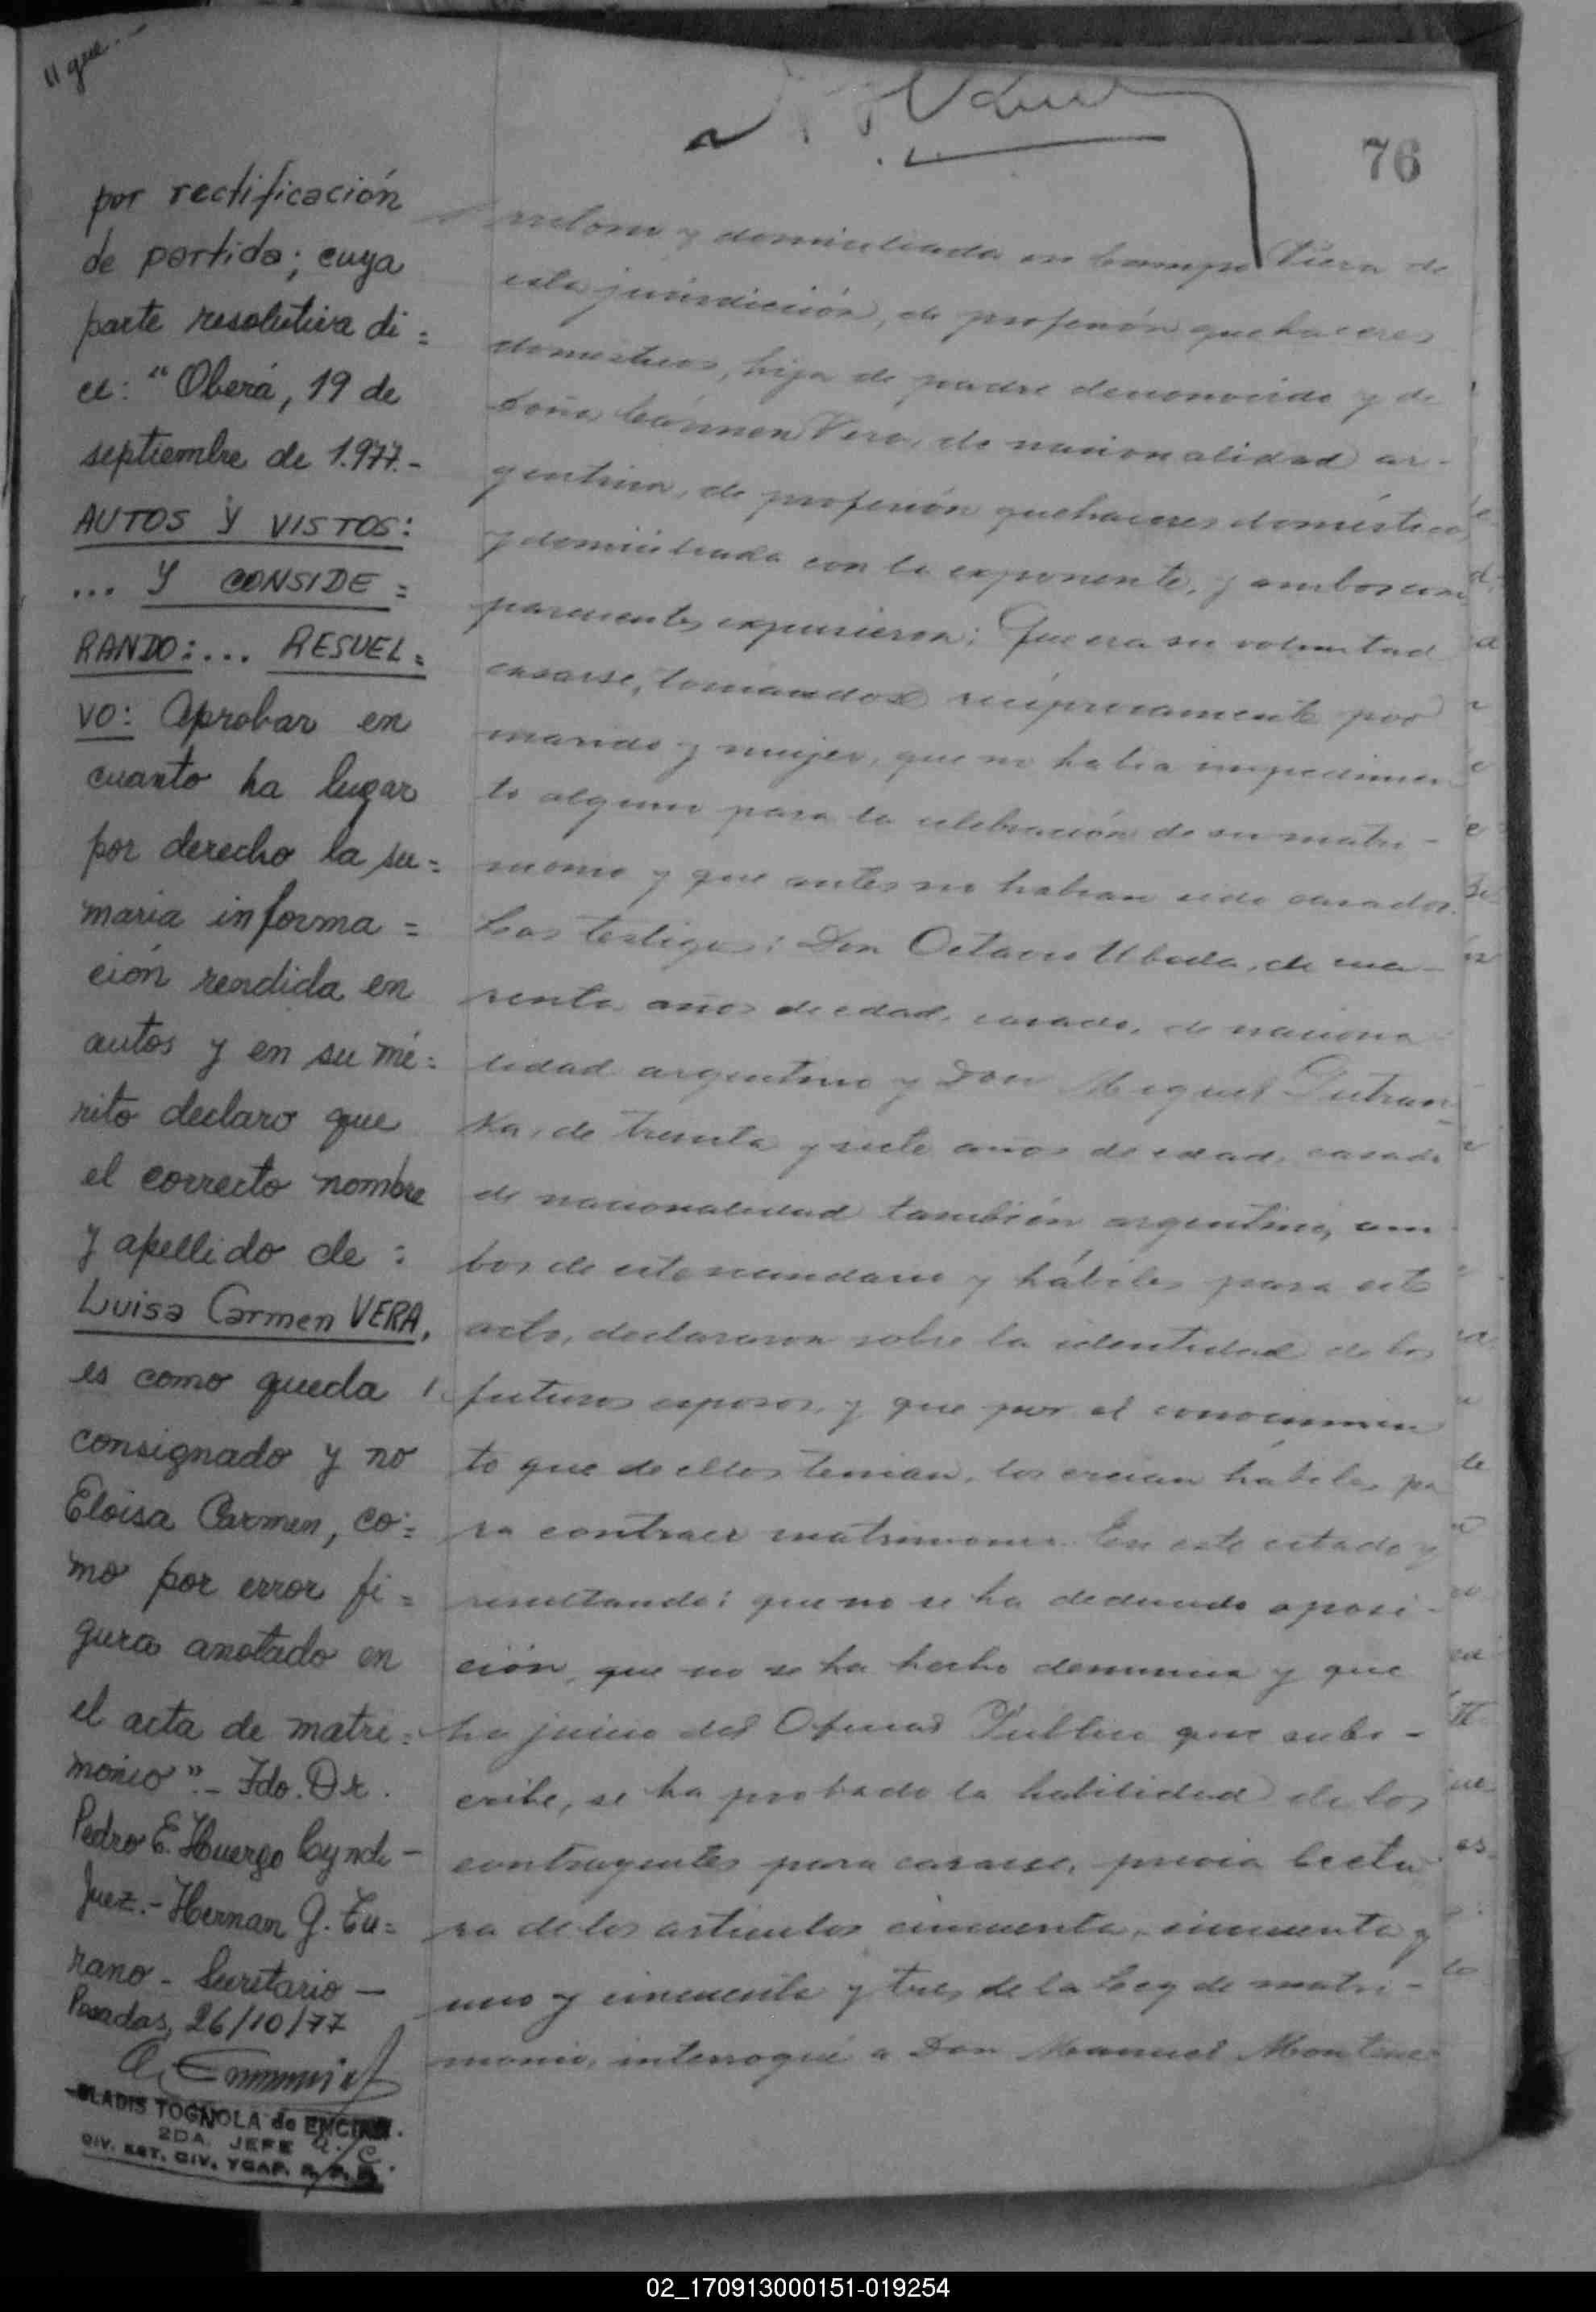 76
"que.-
por rectificación
de partida; cuya
parte resolutiva di=
ce: "Oberá, 19 de
septiembre de 1.977.-
AUTOS Y VISTOS:
... Y CONSIDE=
RANDO:... RESUEL=
VO: Aprobar en
cuanto ha lugar
por derecho la su=
maria informa=
ción rendida en
autos y en su mé=
rito declaro que
el correcto nombre
y apellido de:
Luisa Carmen VERA,
es como queda
consignado y no
Eloisa Carmen, co=
mo por error fi=
gura anotado en
el acta de matri=
monio".- Fdo. Dr.
Pedro E. Huergo
Juez.- Hernan G.
rano - Secretario -
Posadas, 26/10/77
GLADIS TOGNOLA de ENCINA
2DA. JEFE a/c.
y domiciliada en Campo Viera de
esta jurisdicción, de profesión quehaceres
domesticos, hija de padre desconocido y de
doña Cármen Vera, de nacionalidad ar-
gentina, de profesión quehaceres domésticos,
y domiciliada con la exponente, y ambos com
parecientes expusieron: Que era su voluntad
casarse, tomandose recíprocamente por
marido y mujer, que no habia impedimen
to alguno para la celebración de su matri-
monio y que antes no habian sido casados.
Los testigos: Don Octavio Ubeda, de cua-
renta años de edad, casado, de naciona
lidad argentino y Don Miguel
ka, de treinta y siete años de edad, casado
de nacionalidad también argentino, am
bos de este vecindario y hábiles para este
acto, declararon sobre la identidad de los
futuros esposos, y que por el conocimien
to que de ellos tenian, los creian hábiles pa
ra contraer matrimonio. En este estado y
resultando: que no se ha deducido oposi-
ción, que no se ha hecho denuncia y que
ha juicio del Oficial Público que subs-
cribe, se ha probado la habilidad de los
contrayentes para casarse, previa lectu
ra de los artículos cincuenta, cincuenta y
uno y cincuenta y tres de la Ley de matri-
monio, interrogué a Don Manuel
02_170913000151-019254